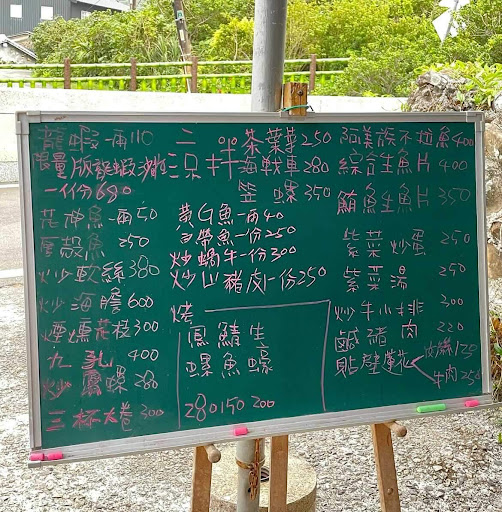 龍蝦一兩110
限量版龍蝦沙拉
一份680
花神魚一兩50
厚殼魚 250
炒軟絲380
炒海膽600
煙燻花枝300
九孔 400
炒鳳螺280
三杯大卷300
拌
250
海戰車280
笠螺 350
黃G魚一兩40
白帶魚一份250
炒蝸牛一份300
炒山豬肉一份250
烤
鳳鯖生
螺魚蠔
280 150 200
阿美族不拉魚400
綜合生魚片 400
鮪魚生魚片 350
紫菜炒蛋 250
紫菜湯 250
炒牛小排 300
鹹豬肉 220
貼壁蓮花
牛肉250